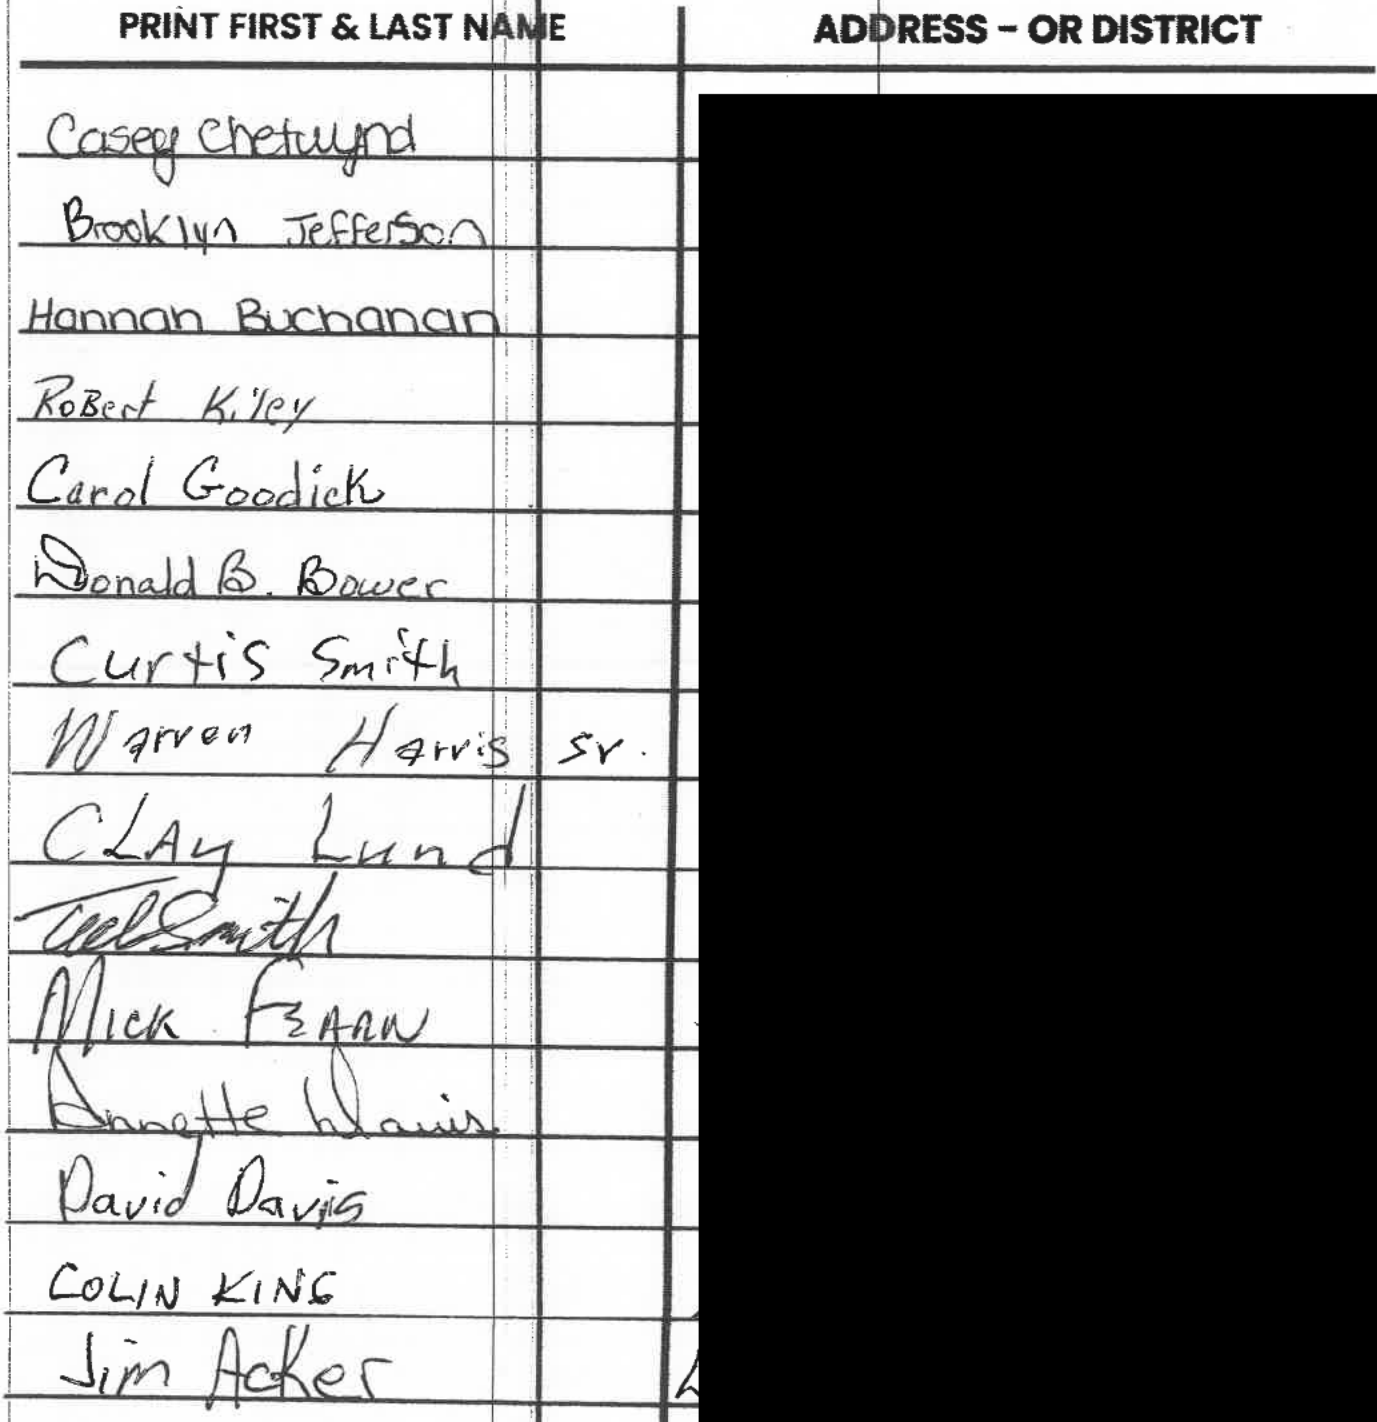 PRINT FIRST & LAST NAME ADDRESS – OR DISTRICT
Casey Chetwynd
Brooklyn Jefferson
Hannah Buchanan
Robert Kiley
Carol Goodick
Donald B. Bower
Curtis Smith
Warren Harris Sr.
CLAy Lund
Smith
MICK FEARN
Annette Davis
David Davis
COLIN KING
Jim Acker